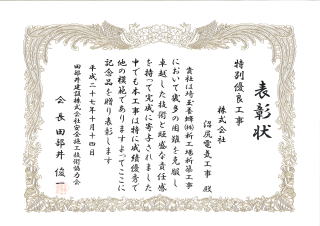 表彰状
特別優良工事
株式会社
沼尻電気工事 殿
貴社は埼玉養蜂㈱新工場新築工事
において幾多の困難を克服し
卓越した技術と旺盛な責任感
を持って完成に寄与されました
中でも本工事は特に成績優秀で
他の模範でありますよってここに
記念品を贈り表彰します
平成二十七年十月十四日
田部井建設株式会社安全施工技術協力会
会長 田部井 俊一